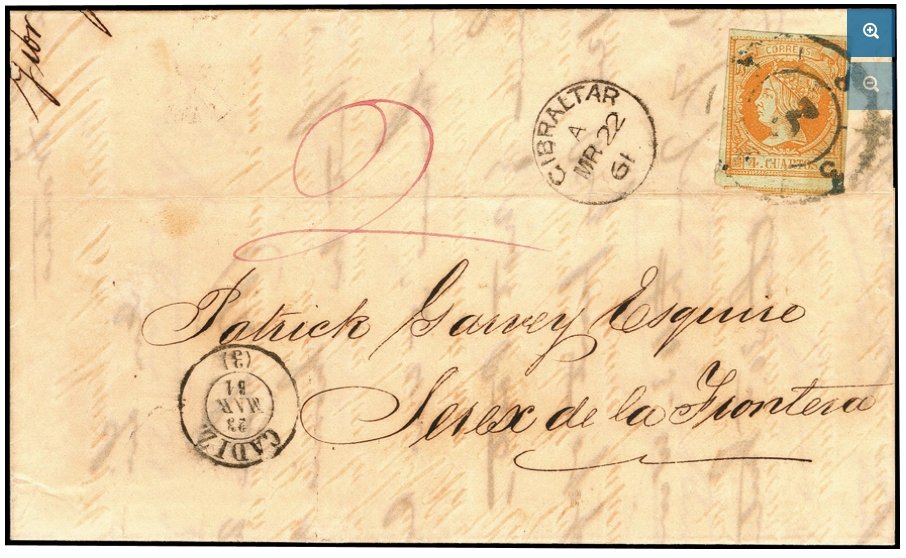 CORREOS
4 CUARTOS
GIBRALTAR
A
MR 22
61
2
Patrick Garvey Esquire
Serex de la Frontera
CADIZ
23
MAR
61
(3)